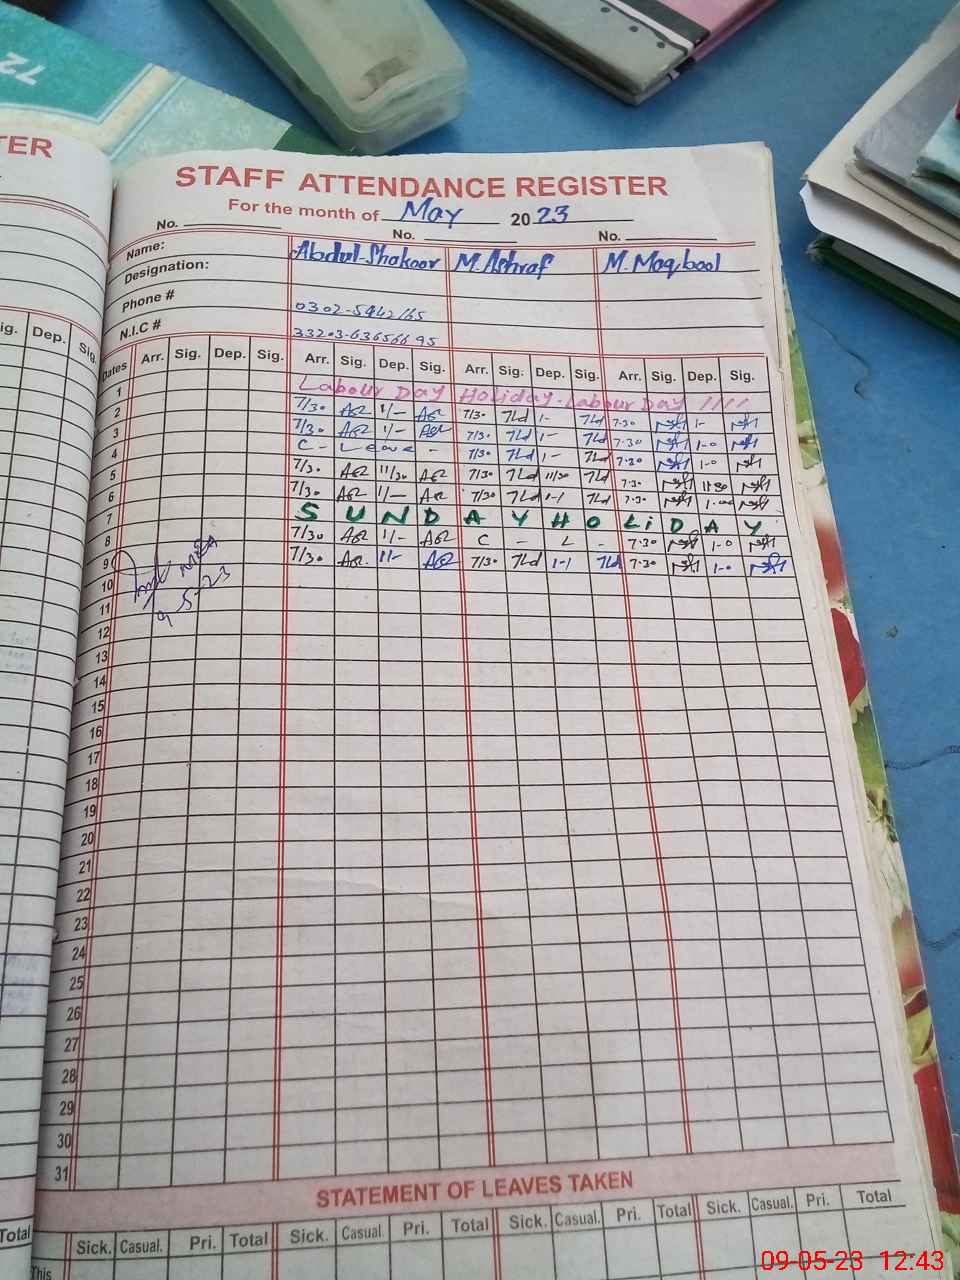 72
TER
STAFF ATTENDANCE REGISTER
For the month of May 2023
No. No. No.
Name: Abdul Shakoor M. Ashraf M. Maqbool
Designation:
Phone # 0302-5942165
N.I.C # 33203-6365669 5
ig. Dep. Sig.
Dates Arr. Sig. Dep. Sig. Arr. Sig. Dep. Sig. Arr. Sig. Dep. Sig. Arr. Sig. Dep. Sig.
1 Labour Day Holiday. Labour Day !!!!
2 7/30 1/- 7/30 1- 7.30 1-
3 7/30 1/- 7/30 1- 7.30 1-0
4 C - Leave - 7/30 1- 7.30 1-0
5 7/30 11/30 7/30 11/30 7.30 11.30
6 7/30 1/- 7/30 1-1 7.30 1.00
7 SUNDAY HOLiDAY
8 7/30 1/- C - L - 7.30 1-0
9 7/30 11- 7/30 1-1 7.30 1-0
10
9 5-23
11
12
13
14
15
16
17
18
19
20
21
22
23
24
25
26
27
28
29
30
31
STATEMENT OF LEAVES TAKEN
Total Sick. Casual. Pri. Total Sick. Casual. Pri. Total Sick. Casual. Pri. Total Sick. Casual. Pri. Total
This
09-05-23 12:43